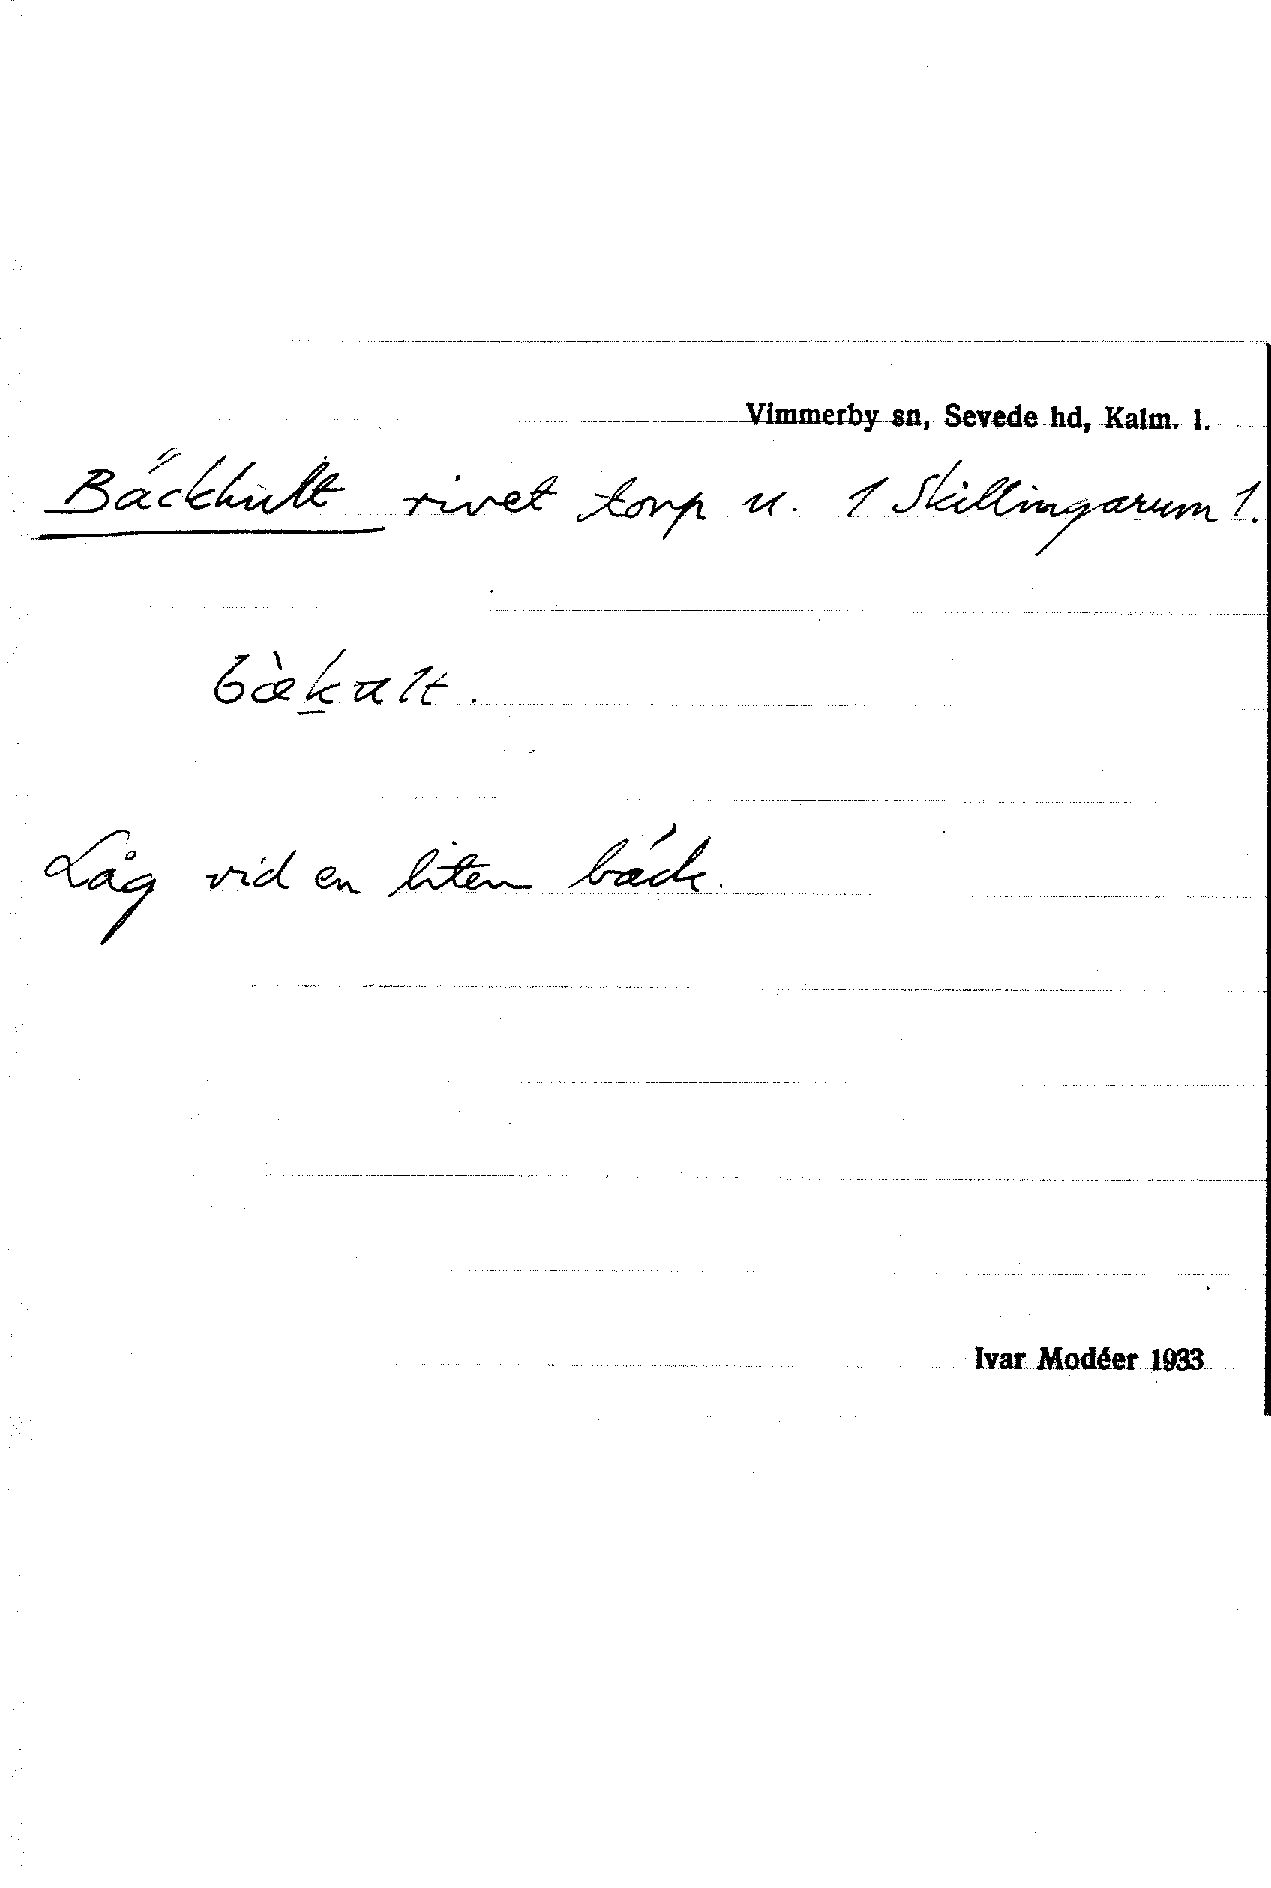 Vimmerby sn, Sevede hd, Kalm. l.
Bäckhult rivet torp u. 1 Skillingarum 1.
bæ̀k̲ɑlt.
Låg vid en liten bäck.
Ivar Modéer 1933